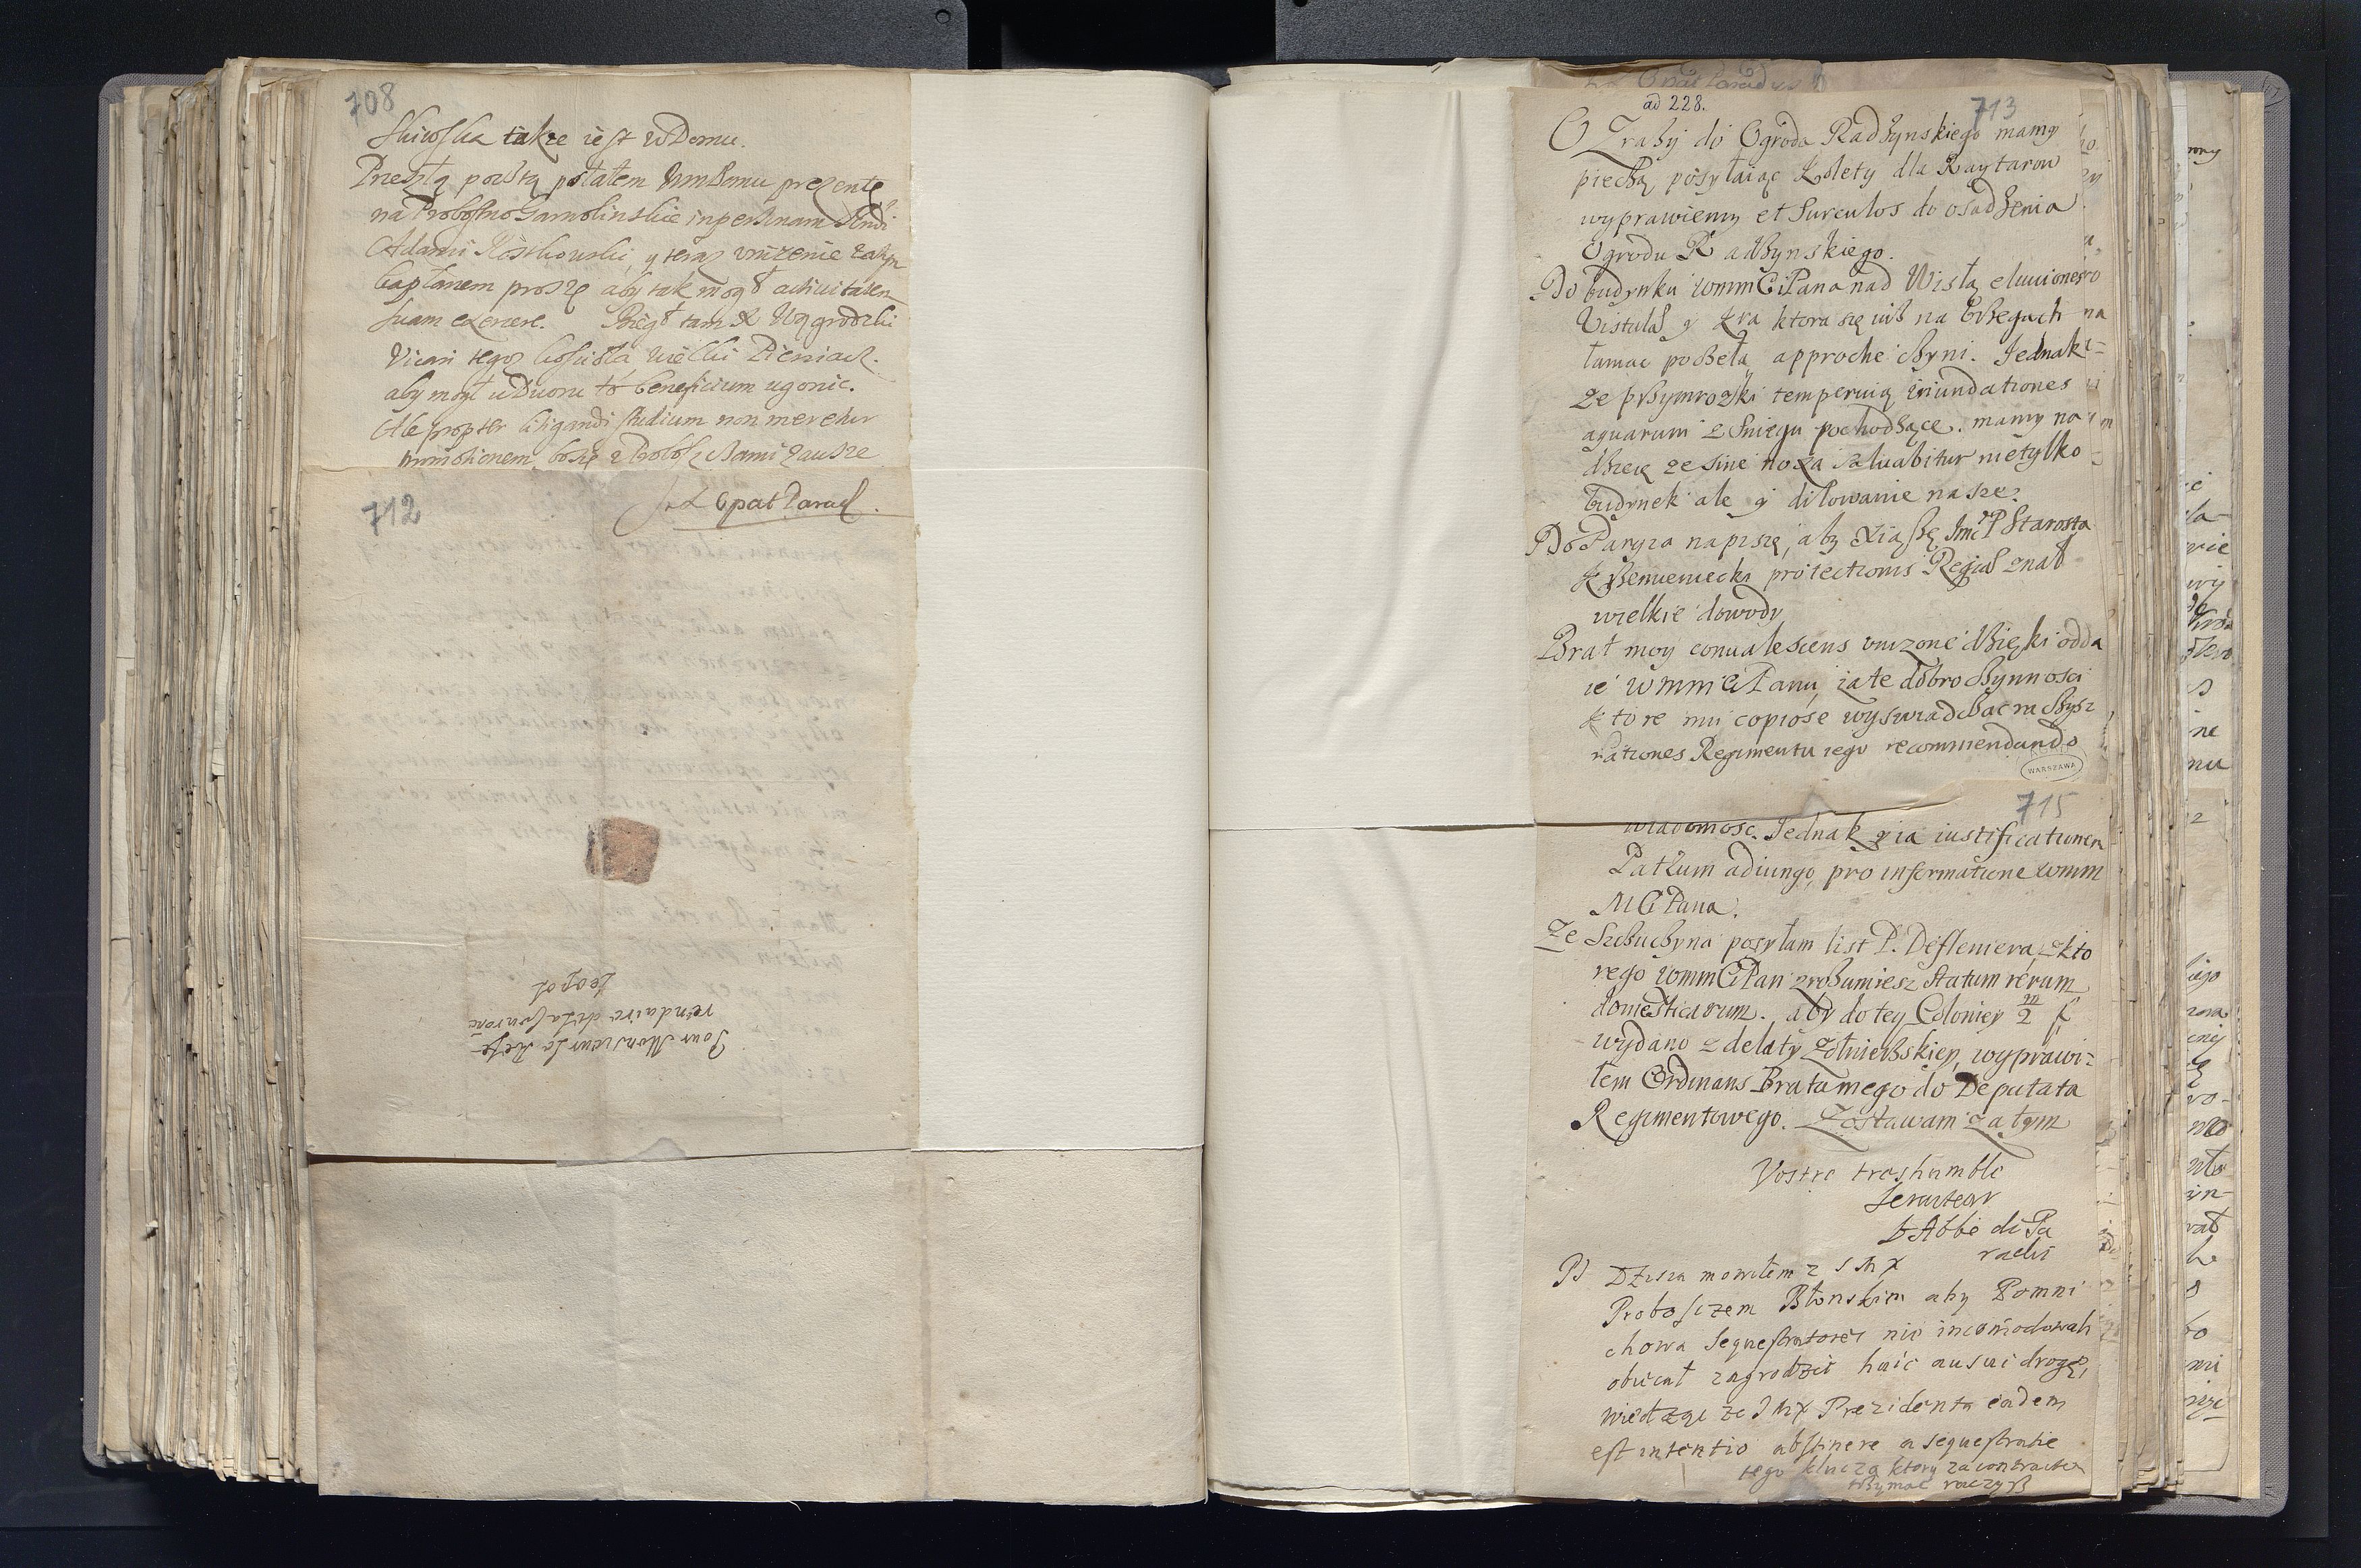 708
takze iest w Domu.
Przeszłą pocztą posłałem WmPanu prezentę
na Probostwo Garwolinskie in personam
Adami y teraz vnizenie za tym
kapłanem proszę aby tak mogł actiuitatem
suam exerere. Biegł tam X
Vicari tego koscioła wielki Pieniacz.
aby mogł u Dworu to beneficium ugonic.
Ale propter litigandi studium non meretur
promotionem, bo się z zawsze
712
X Opat Parad.
Pour Monsieur Le Refe-
rendaire de la Couronne
Leopol
ad 228.
713
O Zrazy do Ogroda Radzynskiego mamy
pieczą posyłaiąc Kolety dla Raytarow
wyprawiemy et surculos do osadzenia
Ogrodu Radzynskiego.
Do budynku WmmCiPana nad Wisłą eluuiones
Vistulae y kra ktora się iuż na brzegach
łamac poczeła approche czyni. Jednak
ze przymrozki temperuią inundationes
aquarum z Sniegu pochodzące. mamy na
dzieię ze sine noxa saluabitur nietylko
budynek ale y dilowanie nasze.
Do Paryza napiszę, aby Xiązę Jmc P Starosta
Krzemieniecki protectionis Regiae znał
wielkie dowody
Brat moy conualescens vnizone dzięki odda
ie WmmCiPanu, za te dobroczynnosci
ktore mu copiose wyswiadczac raczysz
rationes Regimentu iego recommendando
WARSZAWA
715
wiadomosc. Jednak iustificationem
Patrum adiungo, pro informatione Wmm
MCiPana.
Ze Szczuczyna posyłam list P. Defleniera, z kto
rego WmmCiPan zrozumiesz statum rerum
domesticarum. aby do tey Coloniey m/2 f
wydano z delaty Zołnierskiey, wyprawi-
łem Ordinans Brata mego do Deputata
Regimentowego. Zostawam zatym
Vostre tres humble
Serviteur
L'Abbé de Pa
radis
PS Dzisia mowiłem z J M X
Proboszczem Błonskim aby Pomni
chowa sequestratores nie incomodowali
obiecał zagrodzic huic ausui drogę,
wiedząc ze J M X Prezidenta eadem
est intentio abstinere a sequestratie
tego klucza ktory za contractem
trzymac raczysz